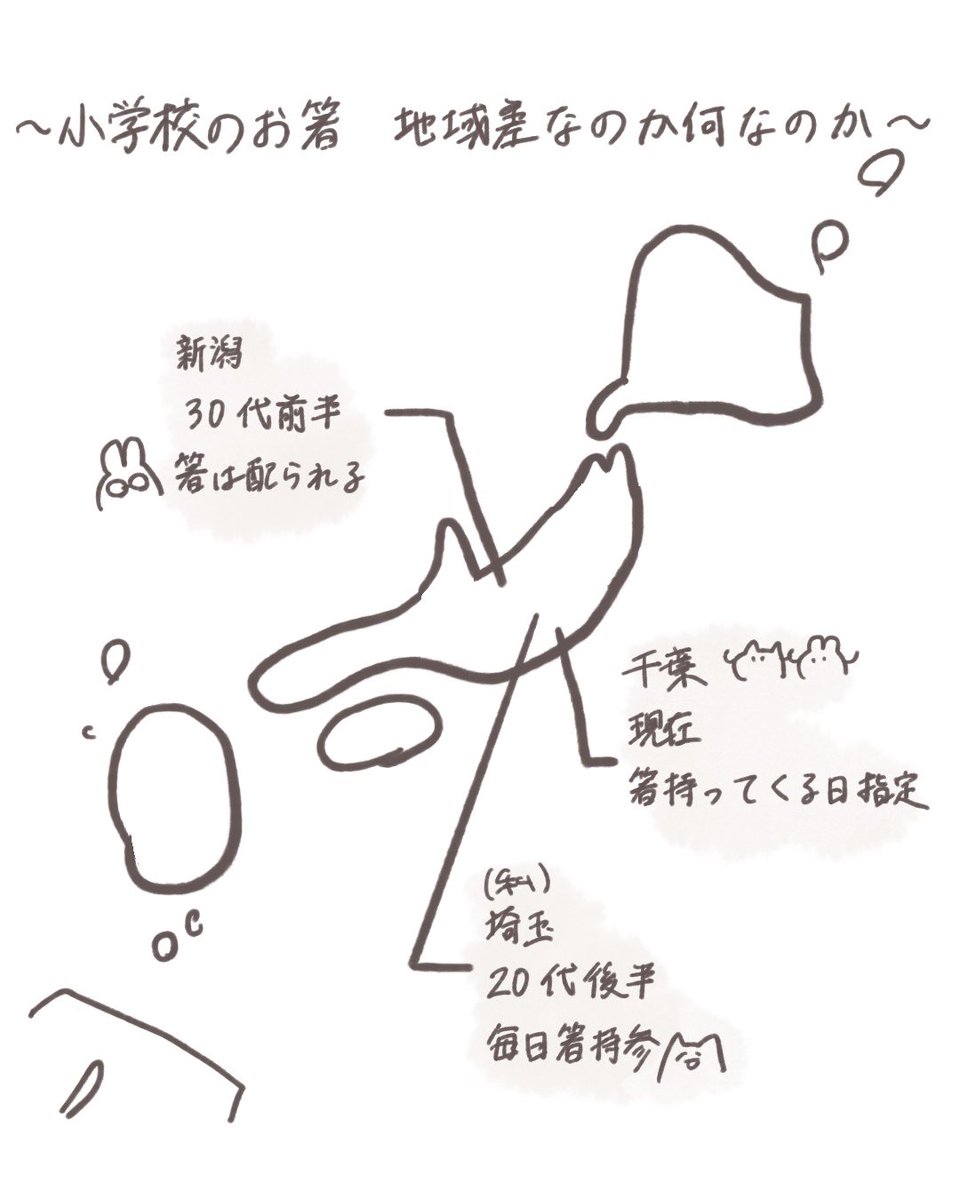 ～小学校のお箸 地域差なのか何なのか～
新潟
30代前半
箸は配られる
千葉
現在
箸持ってくる日指定
(私)
埼玉
20代後半
毎日箸持参